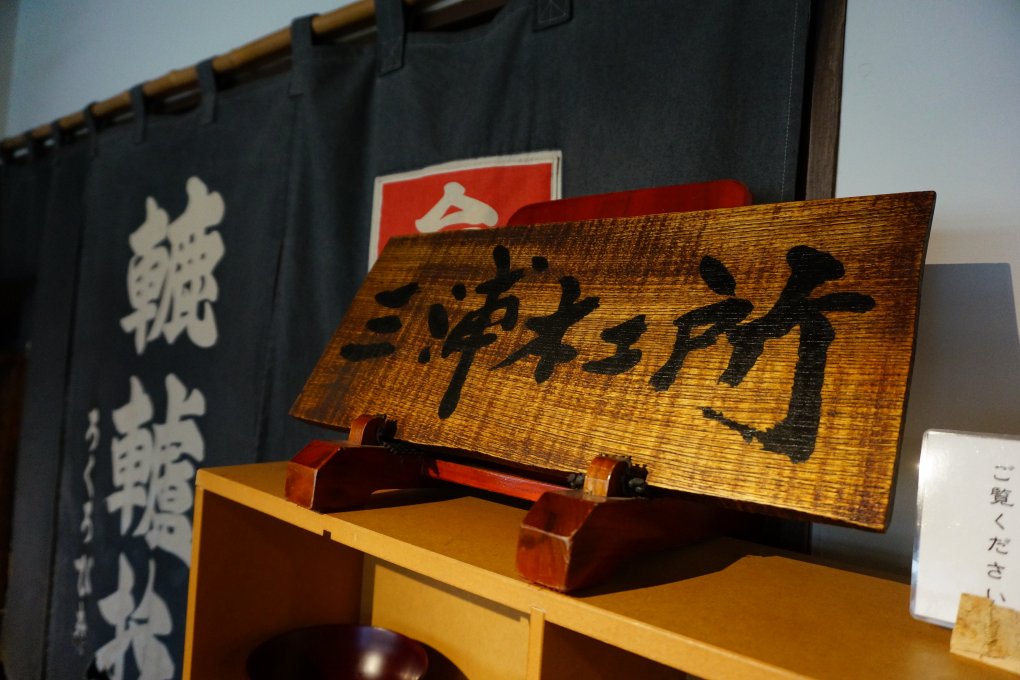 三浦木工所
轆轤
ろくろびき
ご覧ください